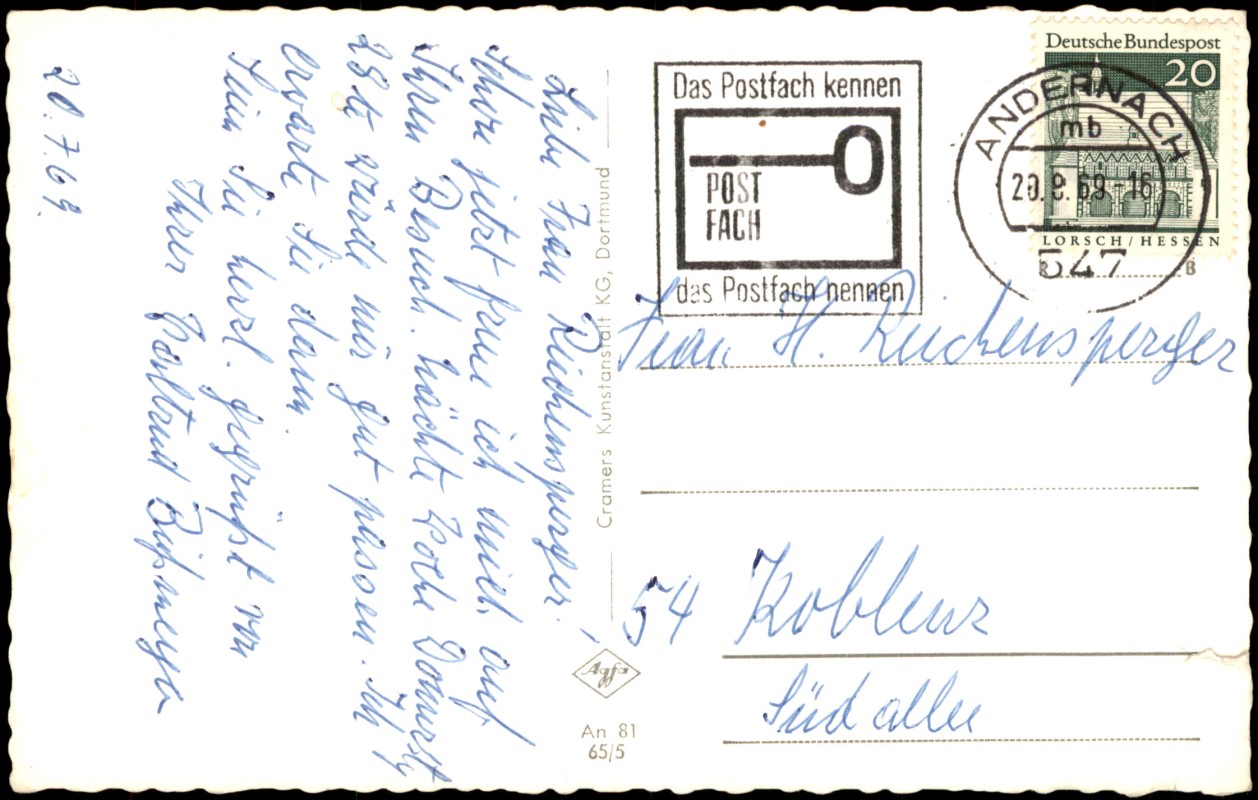 20.7.69.
Liebe Frau Reichensperger!
Ihre jetzt freue ich mich auf
Ihren Besuch. nächte Woche Donnerst
28te würde mir gut passen. Ich
erwarte Sie dann.
Seien Sie herzl. gegrüßt von
Ihrer
Cramers Kunstanstalt KG, Dortmund
Agfa
An 81
65/5
Das Postfach kennen
POST
FACH
das Postfach nennen
ANDERNACH
mb
20.8.69-16
547
Deutsche Bundespost
20
LORSCH/HESSEN
R B
Frau H. Reichensperger
54 Koblenz
Südallee